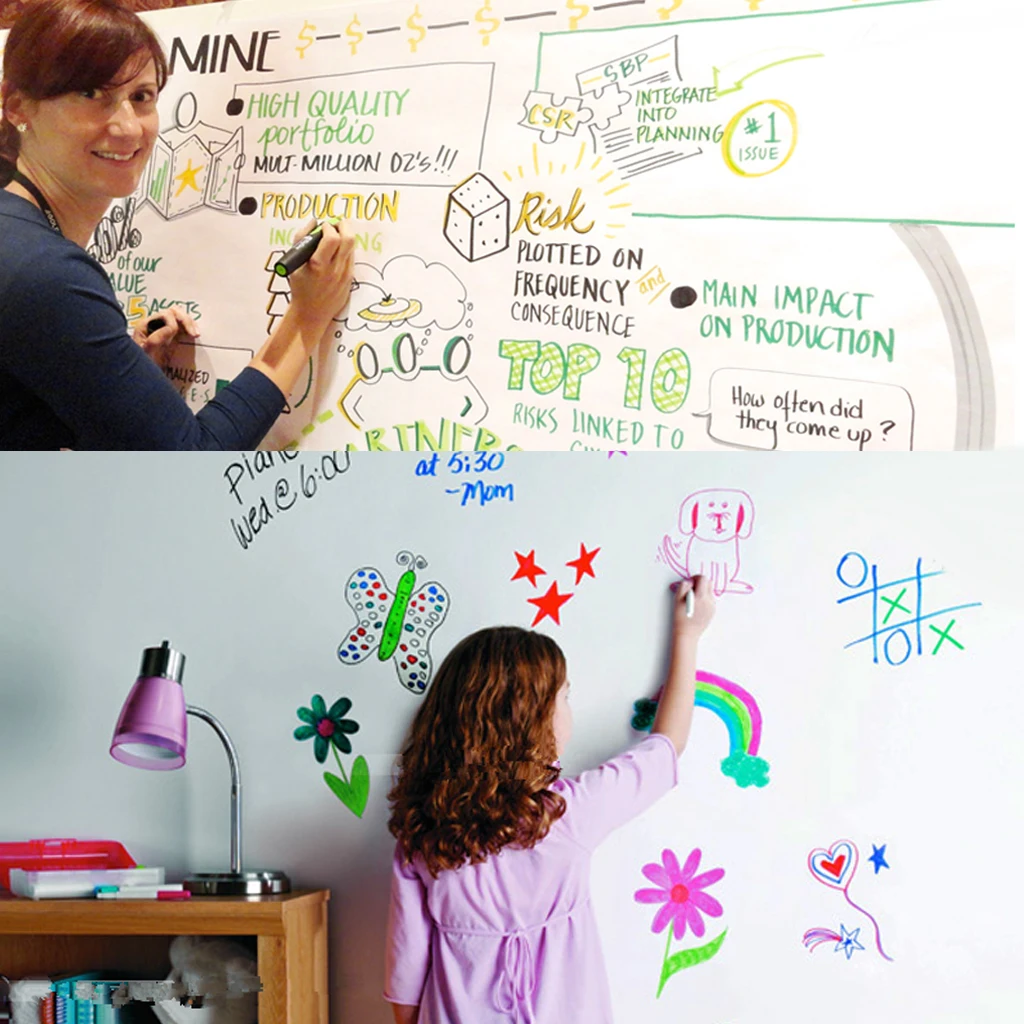 MINE $ $ $ $ $ $ $
HIGH QUALITY
portfolio
MULT-MILLION OZ'S!!!
PRODUCTION
of our
5 ASSETS
SBP
CSR
INTEGRATE
INTO
PLANNING
#1
ISSUE
Risk
PLOTTED ON
FREQUENCY and
CONSEQUENCE
MAIN IMPACT
ON PRODUCTION
TOP 10
RISKS LINKED TO
How often did
they come up?
Wed.@ 6:00
at 5:30
-Mom
O
X
O X